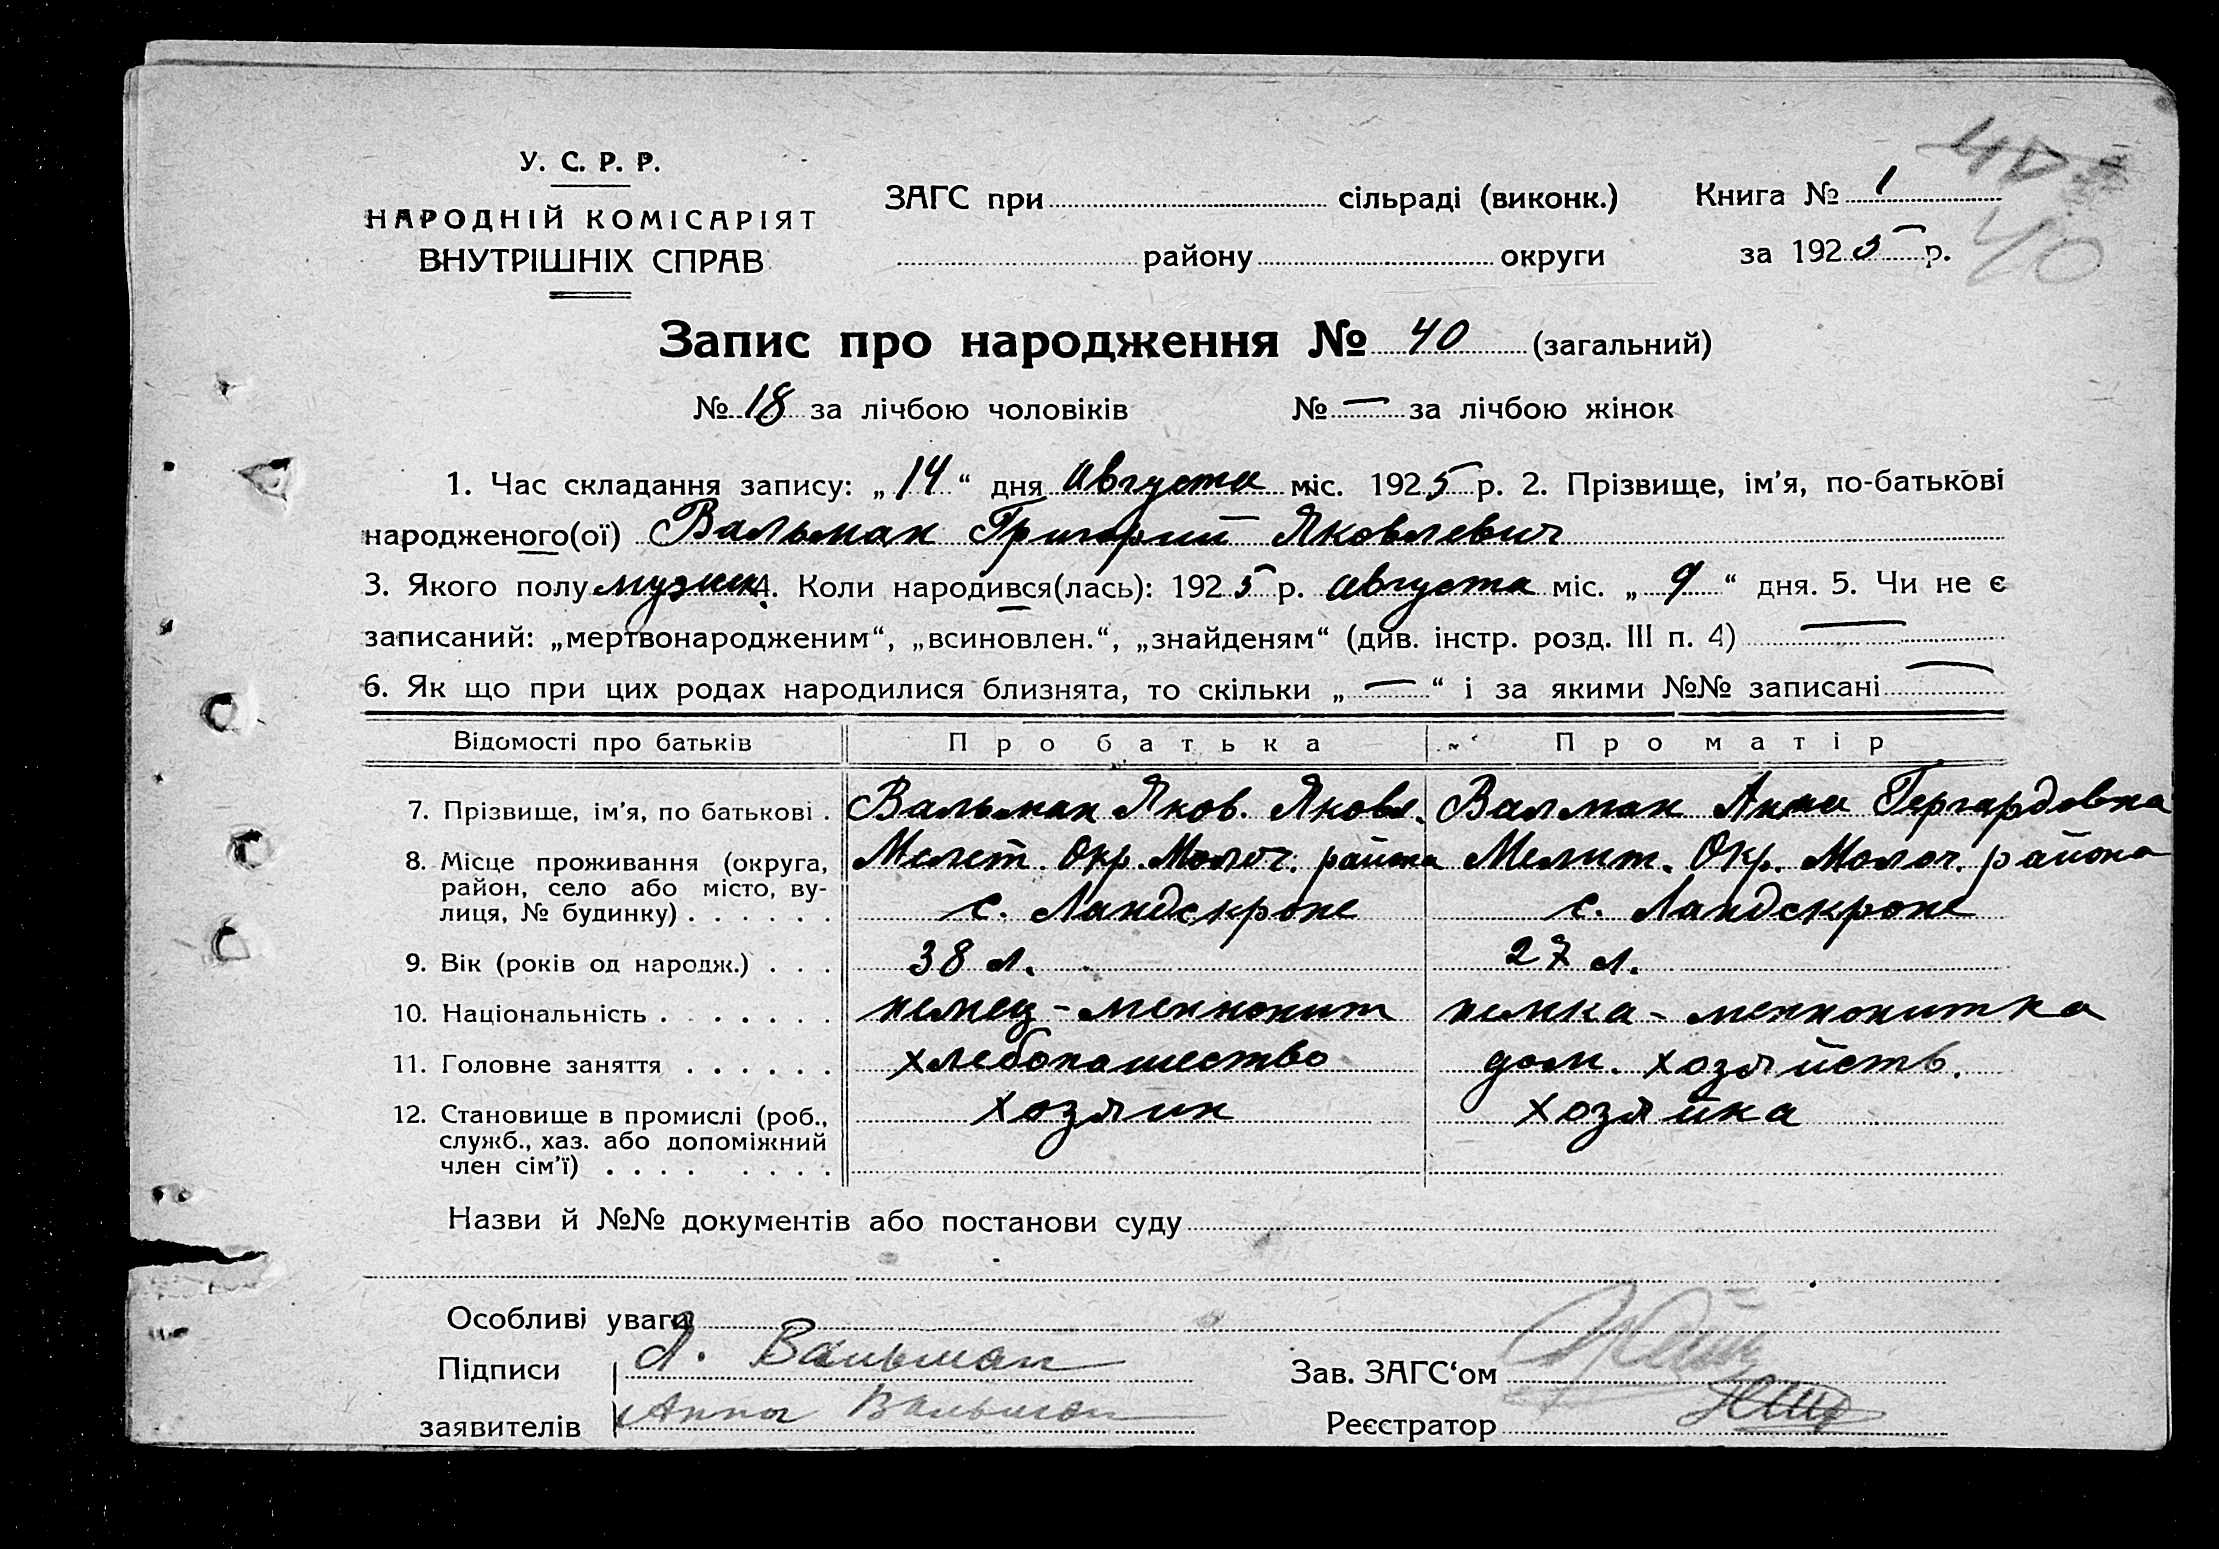 У. С. Р. Р.
НАРОДНІЙ КОМІСАРІЯТ
ВНУТРІШНІХ СПРАВ
ЗАГС при сільраді (виконк.)
району округи
Книга № 1
за 1925 р.
40
40
Запис про народження № 40 (загальний)
№ 18 за лічбою чоловіків № — за лічбою жінок
1. Час складання запису: „14“ дня Августа міс. 1925 р. 2. Прізвище, ім'я, по-батькові
народженого(ої) Вальман Григорий Яковлевич
3. Якого полу мужск. 4. Коли народився(лась): 1925 р. Августа міс. „9“ дня. 5. Чи не є
записаний: „мертвонародженим“, „всиновлен.“, „знайденям“ (див. інстр. розд. III п. 4) —
6. Як що при цих родах народилися близнята, то скільки „—“ і за якими №№ записані —
Відомості про батьків Про батька Про матір
7. Прізвище, ім'я, по батькові . Вальман Яков. Яковл. Валман Анна Гергардовна
8. Місце проживання (округа, Мелет. Окр. Молоч. района Мелит. Окр. Молоч. района
район, село або місто, ву-
лиця, № будинку) . . . . . . с. Ландскроне с. Ландскроне
9. Вік (років од народж.) . . . 38 л. 27 л.
10. Національність . . . . . . немец - меннонит немка - меннонитка
11. Головне заняття . . . . . . хлебопашество дом. хозяйств.
12. Становище в промислі (роб., хозяин хозяйка
служб., хаз. або допоміжний
член сім'ї) . . . . . . . .
Назви й №№ документів або постанови суду
Особливі уваги
Підписи Я. Вальман Зав. ЗАГС‘ом
заявителів Анна Вальман Реєстратор